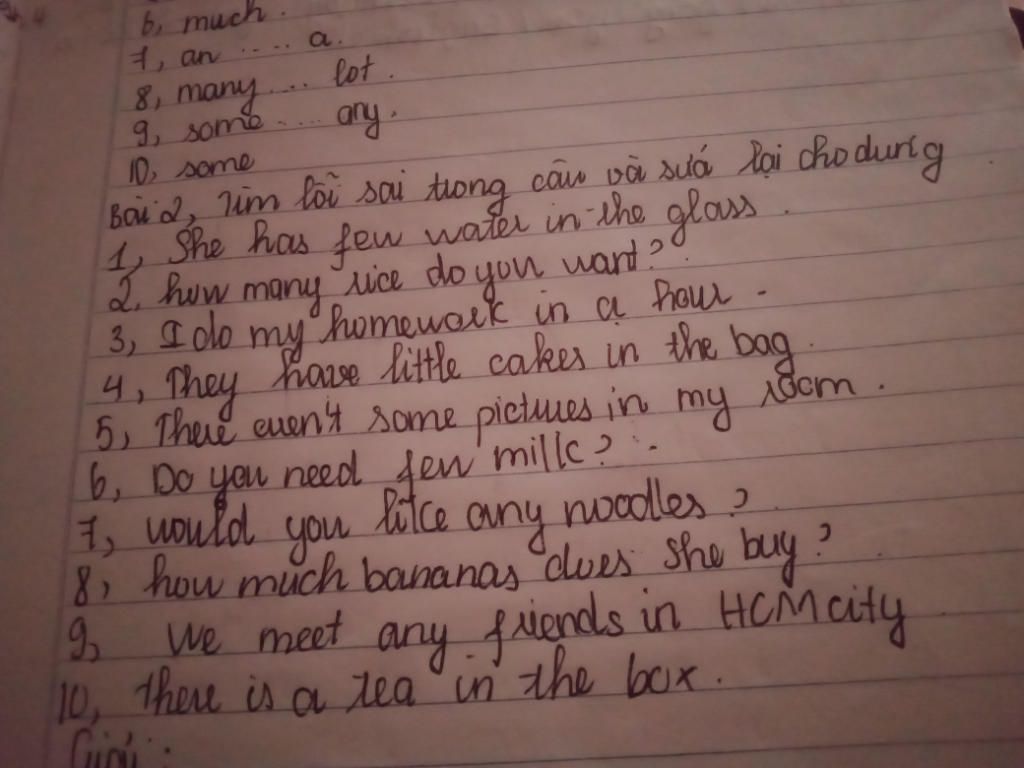 6, much.
7, an .... a.
8, many ... lot.
9, some ... any.
10, some
Bài 2, Tìm lỗi sai trong câu và sửa lại cho đúng
1, She has few water in the glass.
2. how many rice do you want?
3, I do my homework in a hour.
4, They have little cakes in the bag.
5, There aren't some pictures in my room.
6, Do you need few milk?
7, would you like any noodles?
8, how much bananas does she buy?
9, We meet any friends in HCM city
10, there is a tea in the box.
Giải: